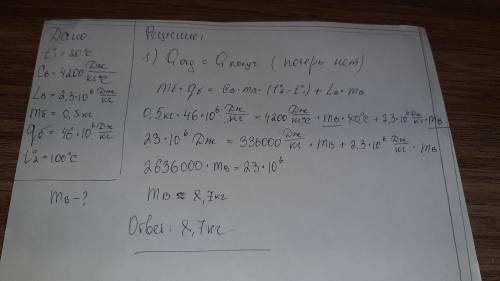 Дано
t°₁ = 20°C
Cв = 4200 Дж/кг°C
Lв = 2,3·10⁶ Дж/кг
mб = 0,5 кг
qб = 46·10⁶ Дж/кг
t°₂ = 100°C
mв - ?
Решение:
1) Qотд = Qполуч (потерь нет)
mб · qб = Cв · mв · (t°₂ - t°₁) + Lв · mв
0,5 кг · 46·10⁶ Дж/кг = 4200 Дж/кг°C · mв · 80°C + 2,3·10⁶ Дж/кг · mв
23·10⁶ Дж = 336000 Дж/кг · mв + 2,3·10⁶ Дж/кг · mв
2636000 · mв = 23·10⁶
mв ≈ 8,7 кг
Ответ: 8,7 кг